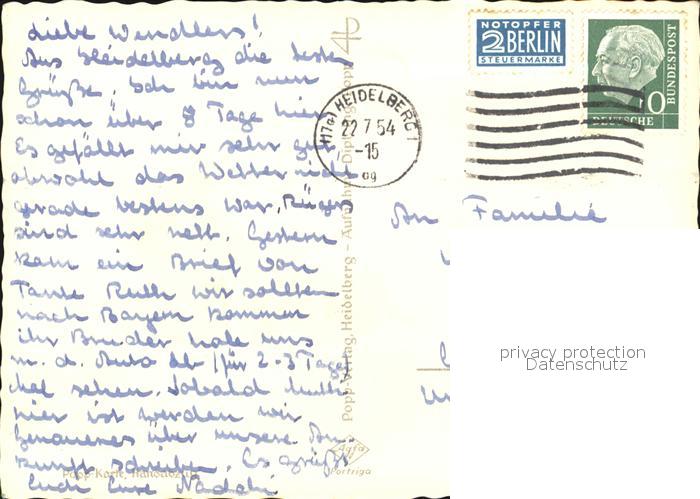 Liebe Wendlers!
Aus Heidelberg die besten
Grüße. Ich bin nun
schon über 8 Tage hier
Es gefällt mir sehr gut
obwohl das Wetter nicht
grade bestens war.
sind sehr nett. Gestern
kam ein Brief von
Tante Ruth wir sollten
nach Bayern kommen
ihr Bruder habe uns
m. d. Auto ab (für 2-3 Tage
Mal sehen. Sobald Mutti
hier ist werden wir
genaueres über unsere An-
kunft schreiben. Es grüßt
Euch Eure
Popp-Karte,
Popp-Verlag, Heidelberg
Agfa
Portriga
NOTOPFER
2 BERLIN
STEUERMARKE
DEUTSCHE
BUNDESPOST
(17a) HEIDELBERG 1
22 7 54
-15
An Familie
privacy protection
Datenschutz